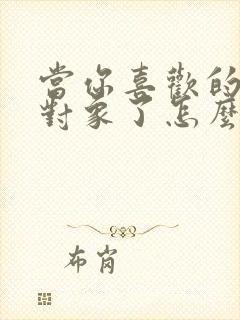 當你喜歡的
對象了怎麼
布肖